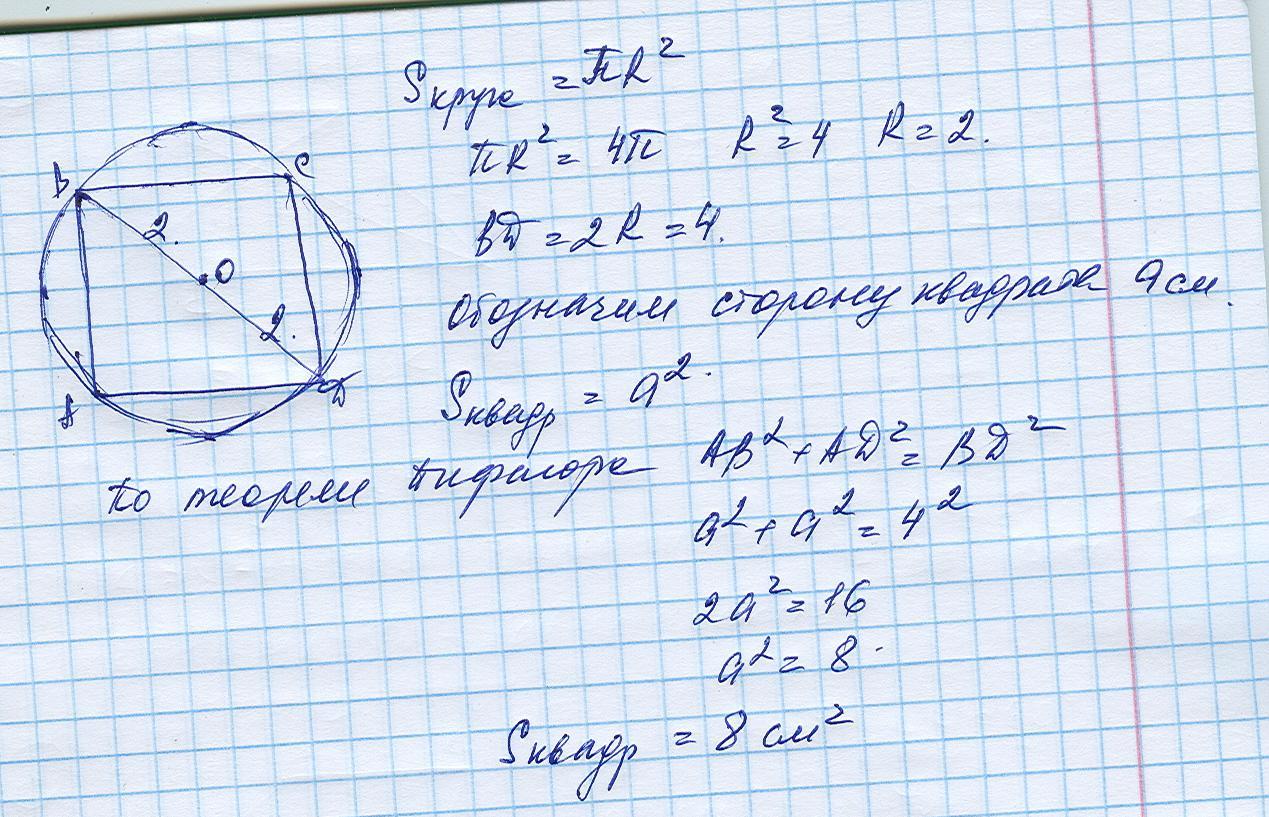 Sкруга = πR²
πR² = 4π R² = 4 R = 2.
B C
2.
BD = 2R = 4.
O
обозначим сторону квадрата a см.
2.
Sквадр = a².
A D
По теореме Пифагора AB² + AD² = BD²
a² + a² = 4²
2a² = 16
a² = 8.
Sквадр = 8 см²